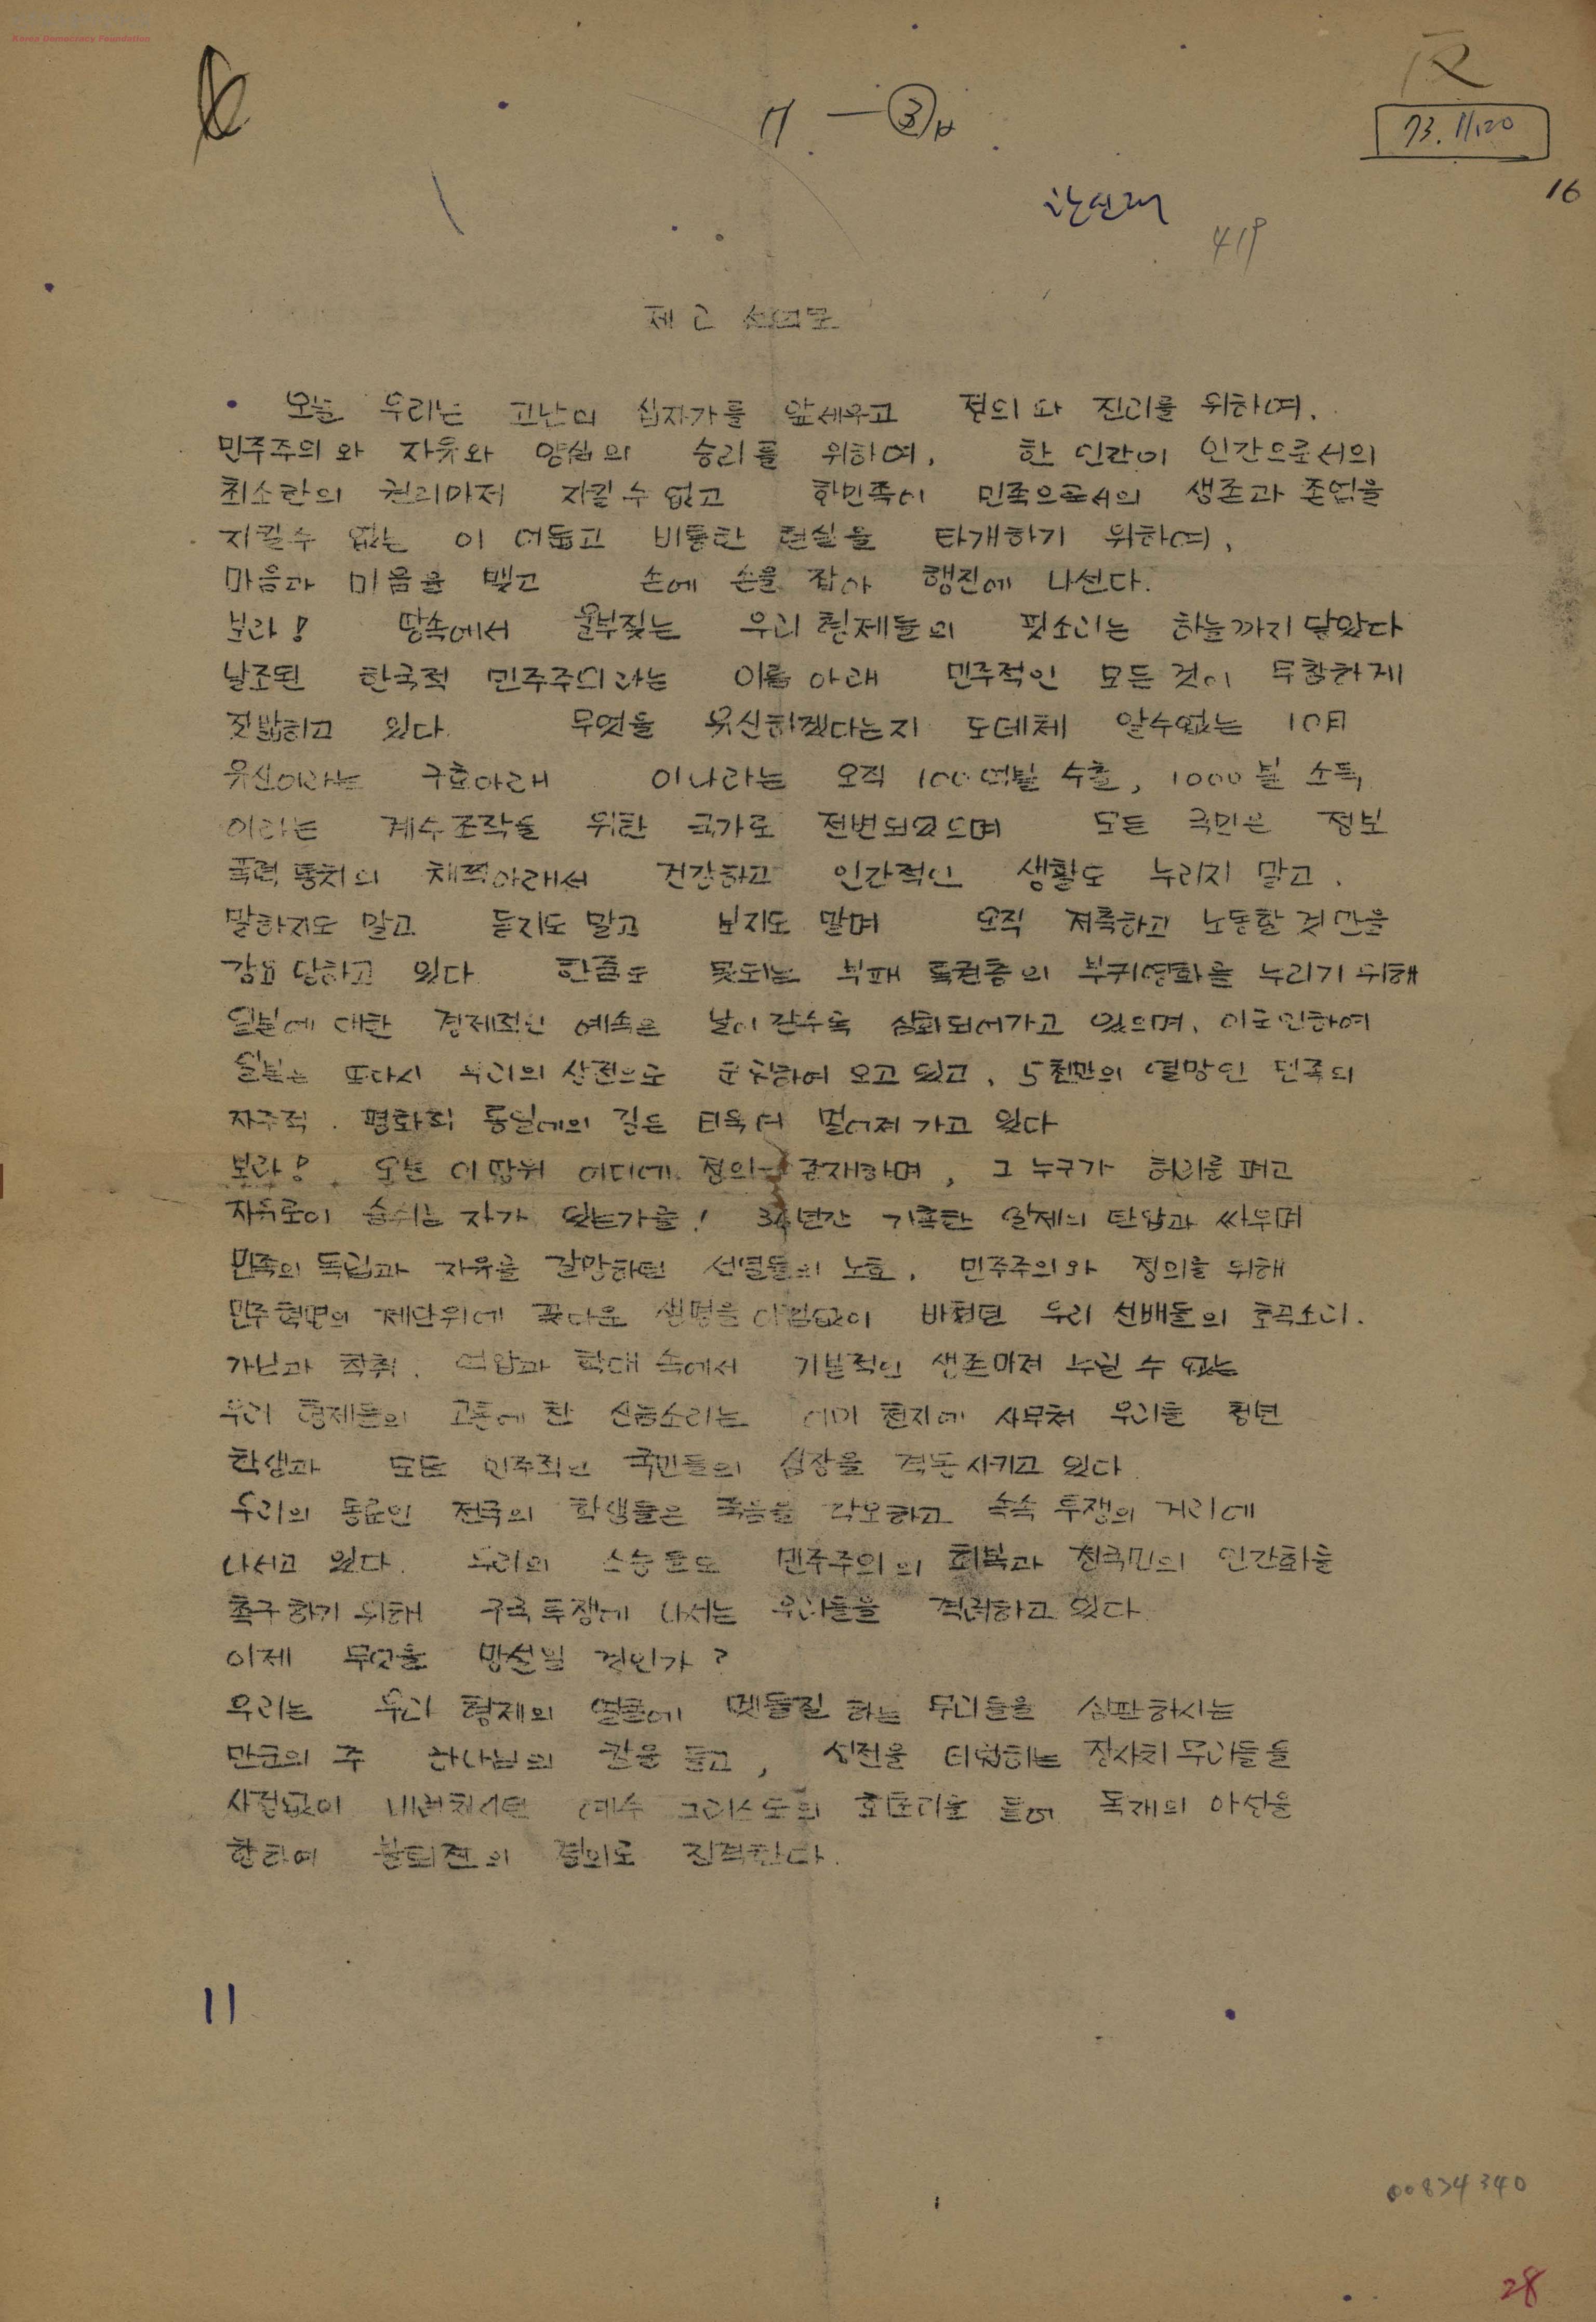 Korea Democracy Foundation
73. 11.20
16
419
제 2 선언문
오늘 우리는 고난의 십자가를 앞세우고 정의와 진리를 위하여.
민주주의와 자유와 양심의 승리를 위하여. 한 인간이 인간으로서의
최소한의 권리마저 지킬 수 없고 한민족이 민족으로서의 생존과 존엄을
지킬수 없는 이 어둡고 비통한 현실을 타개하기 위하여,
마음과 마음을 맺고 손에 손을 잡아 행진에 나선다.
보라! 땅속에서 울부짖는 우리 형제들의 핏소리는 하늘까지 닿았다
날조된 한국적 민주주의라는 이름 아래 민주적인 모든 것이 무참하게
짓밟히고 있다. 무엇을 유신하겠다는지 도데체 알수없는 10月
유신이라는 구호아래 이나라는 오직 100억불 수출, 1000불 소득
이라는 계수조작을 위한 국가로 전변되었으며 모든 국민은 정보
폭력 통치의 채찍아래서 건강하고 인간적인 생활도 누리지 말고.
말하지도 말고 듣지도 말고 보지도 말며 오직 저축하고 노동할 것만을
강요 당하고 있다 한줌도 못되는 부패 특권층의 부귀영화를 누리기 위해
일본에 대한 경제적인 예속은 날이 갈수록 심화되어가고 있으며. 이로 인하여
일본은 또다시 우리의 상전으로 군림하여 오고 있고, 5천만의 열망인 민족의
자주적. 평화적 통일에의 길은 더욱 더 멀어져 가고 있다
보라! 오늘 이 땅위 어디에 정의가 존재하며, 그 누구가 허리를 펴고
자유로이 숨쉬는 자가 있는가를! 36년간 가혹한 일제의 탄압과 싸우며
민족의 독립과 자유를 갈망하던 선열들의 노호. 민주주의와 정의를 위해
민주혁명의 제단위에 꽃다운 생명을 아낌없이 바쳤던 우리 선배들의 호곡소리.
가난과 착취. 억압과 학대 속에서 기본적인 생존마저 누릴 수 없는
우리 형제들의 고통에 찬 신음소리는 이미 천지에 사무쳐 우리들 청년
학생과 모든 민주적인 국민들의 심장을 격동시키고 있다.
우리의 동료인 전국의 학생들은 죽음을 각오하고 속속 투쟁의 거리에
나서고 있다. 우리의 스승들도 민주주의의 회복과 전국민의 인간화를
촉구하기 위해 구국투쟁에 나서는 우리들을 격려하고 있다.
이제 무엇을 망설일 것인가?
우리는 우리 형제의 얼굴에 맷돌질 하는 무리들을 심판하시는
만군의 주 하나님의 칼을 들고, 성전을 더럽히는 장사치 무리들을
사정없이 내려치시던 예수 그리스도의 회초리를 들어 독재의 아성을
향하여 불퇴전의 결의로 진격한다.
11
00834340
28